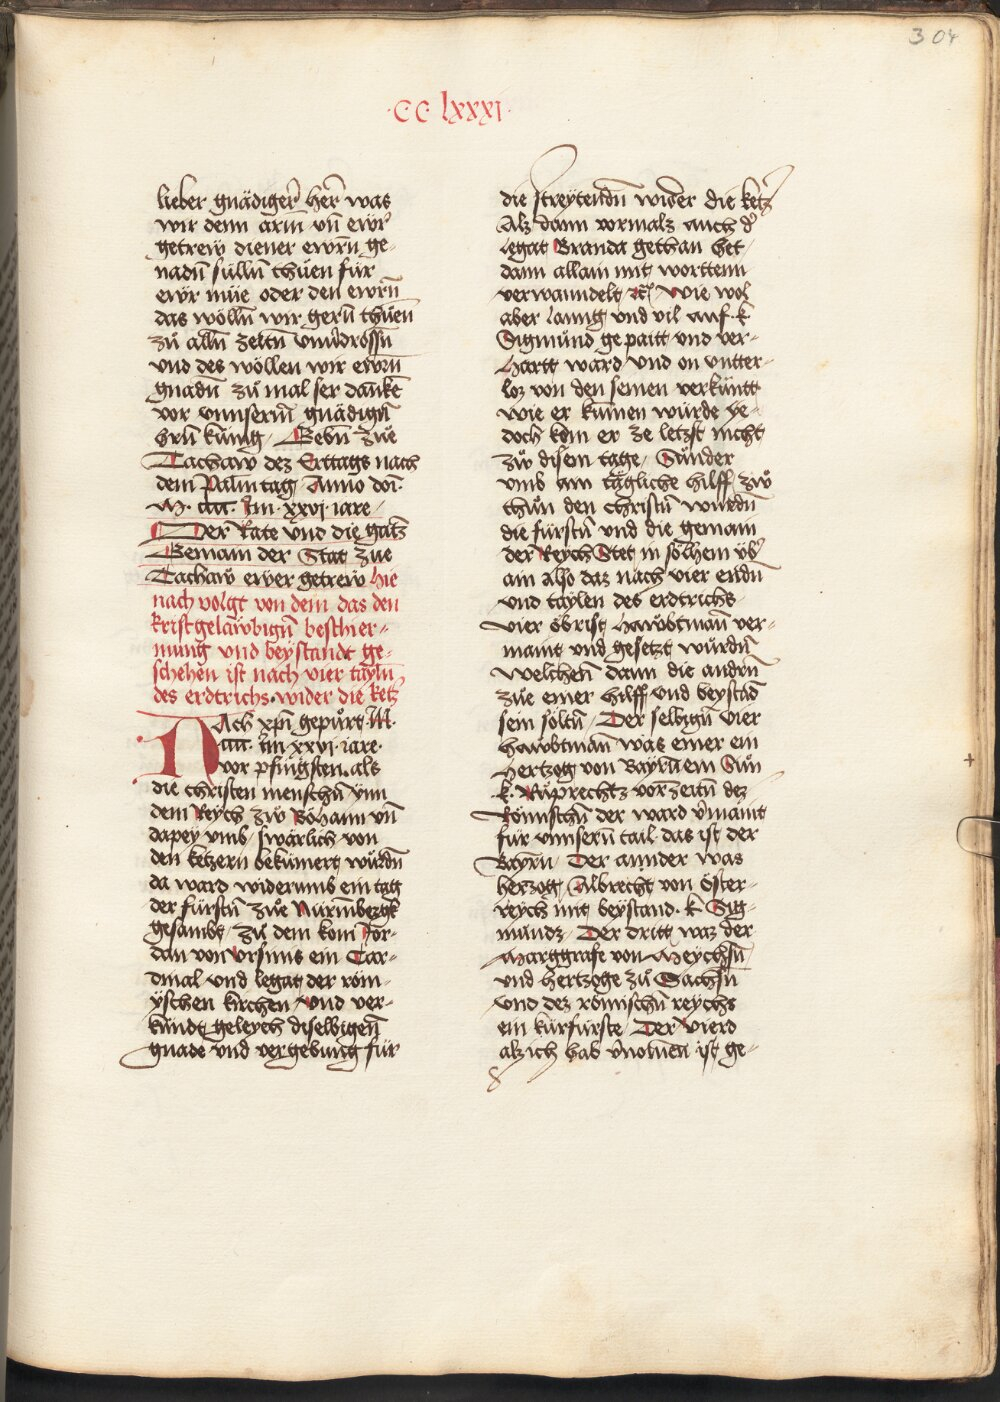 304
·CC· lxxxi·
lieber gnädiger̄ her̄ was
wir denn arm̄ vn̄ ewr̄
getrew diener ewrn̄ ge-
nadn̄ sülln̄ thüen für
ewr müe oder den ewrn̄
das wölln̄ wir gern̄ thüen
zů alln̄ zeitn̄ vnu͂drossn̄
vnd des wöllen wir ewrn̄
gnadn̄ zů mal ser dancke͂
vor vnnserm̄ gnädign̄
hrn̄ künig / Gebn̄ zůe
Tachaw dez Erttags nach
dem Palm tag / Anno do͂i·
M· cccc· Im· xxvi iare /
Der Rate vnd die gātz
Gemain der Stat zue
Tachaw ewer getrew hie
nach volgt von dem das den
kristgeläwbign̄ beschier-
mung vnd beystandt ge-
schehen ist nach vier tayln̄
des erdtrichs· wider die ketz͛
NAch xp͂i gepůrt· M·
cccc· Im· xxvi· iare·
vor pfingsten· als
die christen menschn̄ ynn
dem Reych zů Böhaim vn̄
dapey vmb / swärlich von
den ketzern bekümert wůrdn̄
da ward widerumb ein tag
der fürstn̄ zůe Nürmbergk
gesambt / zů dem kom Jor-
dan von Vrsinis ein Car-
dinal vnd legat der röm-
yschen kirchen / Vnd ver-
kündt geleych diselbigen̄
gnade vnd vergebung für
die streytendn̄ wider die ketz͛
Als dann vormals auch d͛
legat Branda gethan het /
dann allain mit wortten
verwanndelt / ꝛc͂ / Wie wol
aber lanng vnd vil auf· k·
Sigmünd gepaitt vnd ver-
hartt ward / vnd on vntter-
loz von den seinen verküntt
wie er kumen würde ye-
doch kom er ze letzst nicht
zů disem tage / Sůnder
vmb ain tägliche hilff / zů
thůn den christn̄ wurdn̄
die fürstn̄ vnd die gemain
der Reych Stet in sölhem vb͛
ain also daz nach vier endn̄
vnd taylen des erdtrichs
vier öbrist hawbtman̄ ver-
maint vnd gesetzt wůrdn̄
welchen̄ dann die andrn̄
zůe einer hilff vnd beystād
sein soltn̄ / Der selbign̄ vier
hawbtman̄ was einer ein
hertzog von Bayrn̄ ein Sůn
·k· Růprechtz vor zeitn̄ dez
Römischn̄ der ward v͛maint
für vnnsern̄ tail das ist der
Bayrn̄ / Der annder was
hertzog Albrecht von öster-
reych mit beystand· k· Sig-
mundz / Der dritt waz der
Marggrafe von Meychsn̄
vnd hertzoge zů Sachsn̄
vnd dez römischn̄ reychs
ein kürfürste / Der Vierd
alz ich hab v͛nomen̄ ist ge-